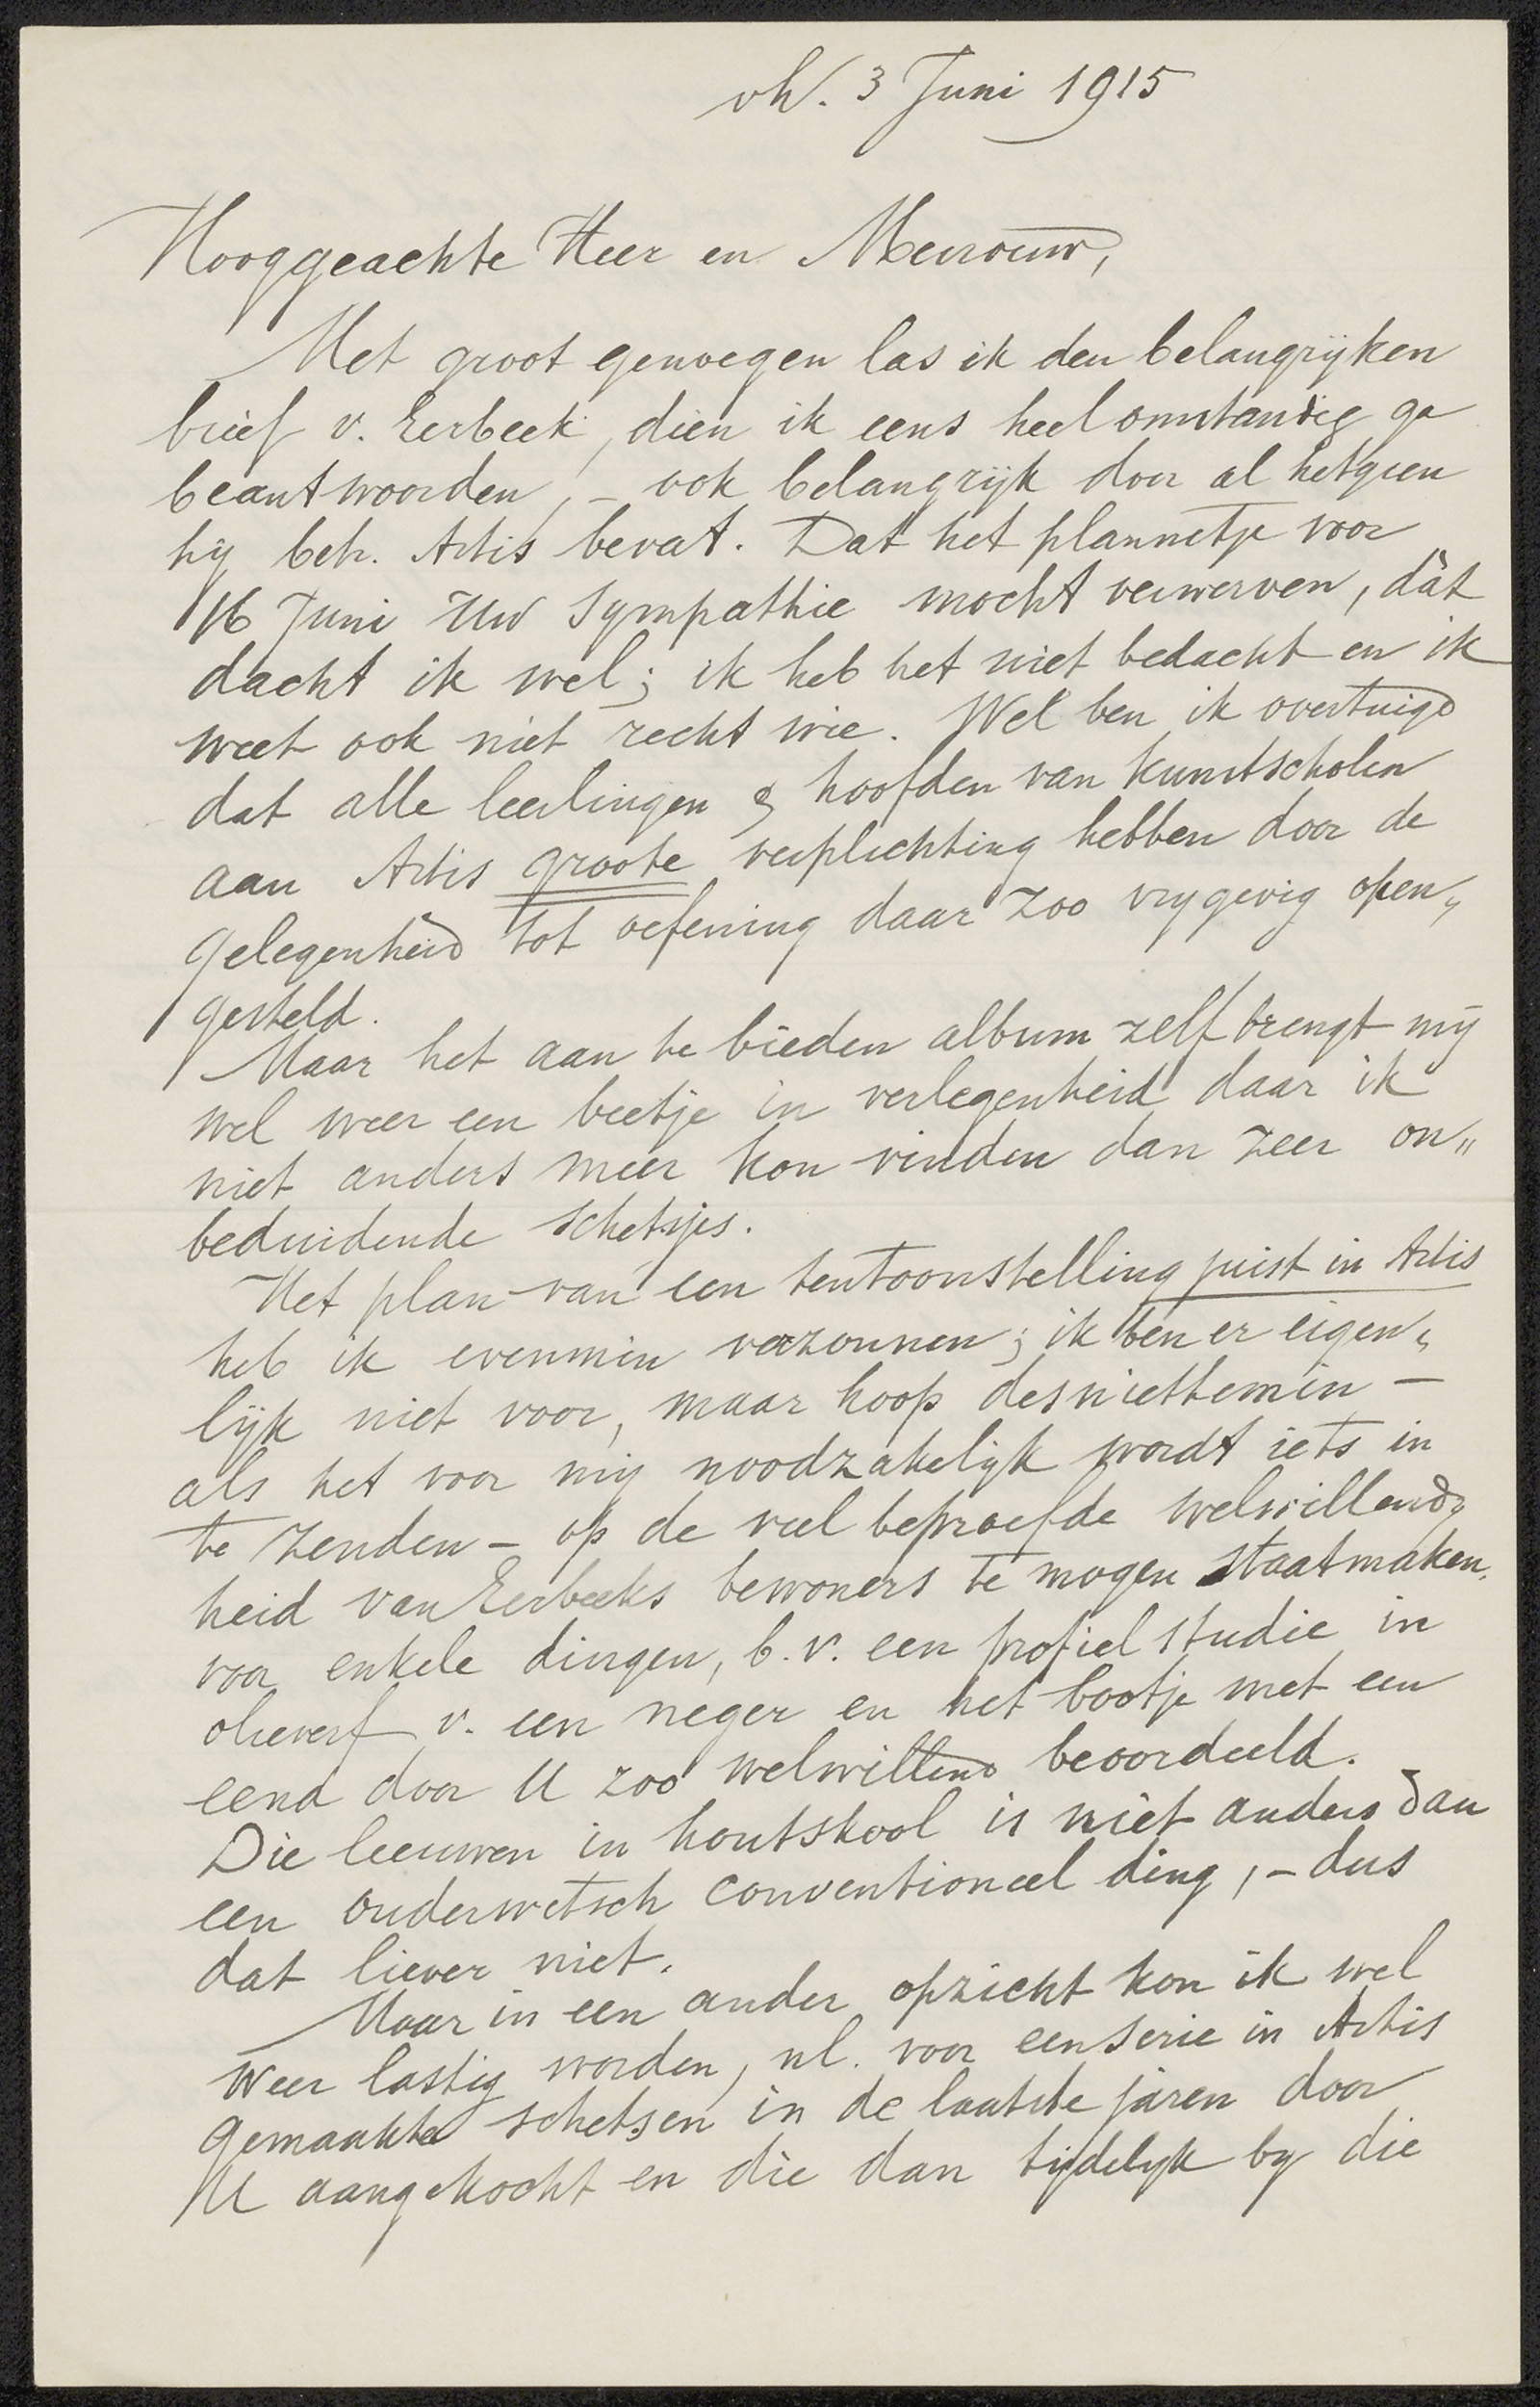 vh. 3 Juni 1915
Hooggeachte Heer en Mevrouw,
Met groot genoegen las ik den belangrijken
brief v. Eerbeek, dien ik eens heel omstandig ga
beantwoorden, – ook belangrijk door al hetgeen
hij betr. Artis bevat. Dat het plannetje voor
16 Juni Uw Sympathie mocht verwerven, dàt
dacht ik wel; ik heb het niet bedacht en ik
weet ook niet recht wie. Wel ben ik overtuigd
dat alle leerlingen & hoofden van kunstscholen
aan Artis groote verplichting hebben door de
gelegenheid tot oefening daar zoo vrygevig open„
gesteld.
Maar het aan te bieden album zelf brengt mij
wel weer een beetje in verlegenheid daar ik
niet anders meer kon vinden dan zeer on„
beduidende schetsjes.
Het plan van een tentoonstelling juist in Artis
heb ik evenmin verzonnen; ik ben er eigen„
lijk niet voor, maar hoop desniettemin –
als het voor mij noodzakelijk wordt iets in
te zenden – op de veel beproefde welwillend„
heid van Eerbeeks bewoners te mogen staatmaken,
voor enkele dingen, b.v. een profiel studie in
olieverf v. een neger en het bootje met een
eend door U zoo welwillend beoordeeld.
Die leeuwen in houtskool is niet anders dan
een ouderwetsch conventioneel ding, – dus
dat liever niet.
Maar in een ander opzicht kon ik wel
weer lastig worden, nl. voor een serie in Artis
gemaakte schetsen in de laatste jaren door
U aangekocht en die dan tijdelyk by die